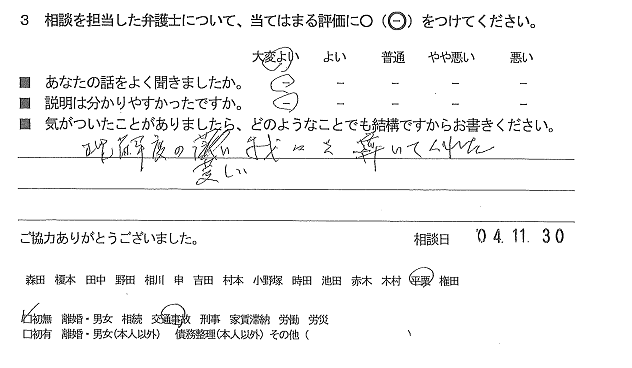 3 相談を担当した弁護士について、当てはまる評価に〇（㊀）をつけてください。
大変よい よい 普通 やや悪い 悪い
■ あなたの話をよく聞きましたか。 － － － － －
■ 説明は分かりやすかったですか。 － － － － －
■ 気がついたことがありましたら、どのようなことでも結構ですからお書きください。
理解度の い
乏しい
ご協力ありがとうございました。 相談日 '04.11.30
森田 榎本 田中 野田 相川 申 吉田 村本 小野塚 時田 池田 赤木 木村 平栗 権田
□初無 離婚・男女 相続 交通事故 刑事 家賃滞納 労働 労災
□初有 離婚・男女(本人以外) 債務整理(本人以外) その他 (